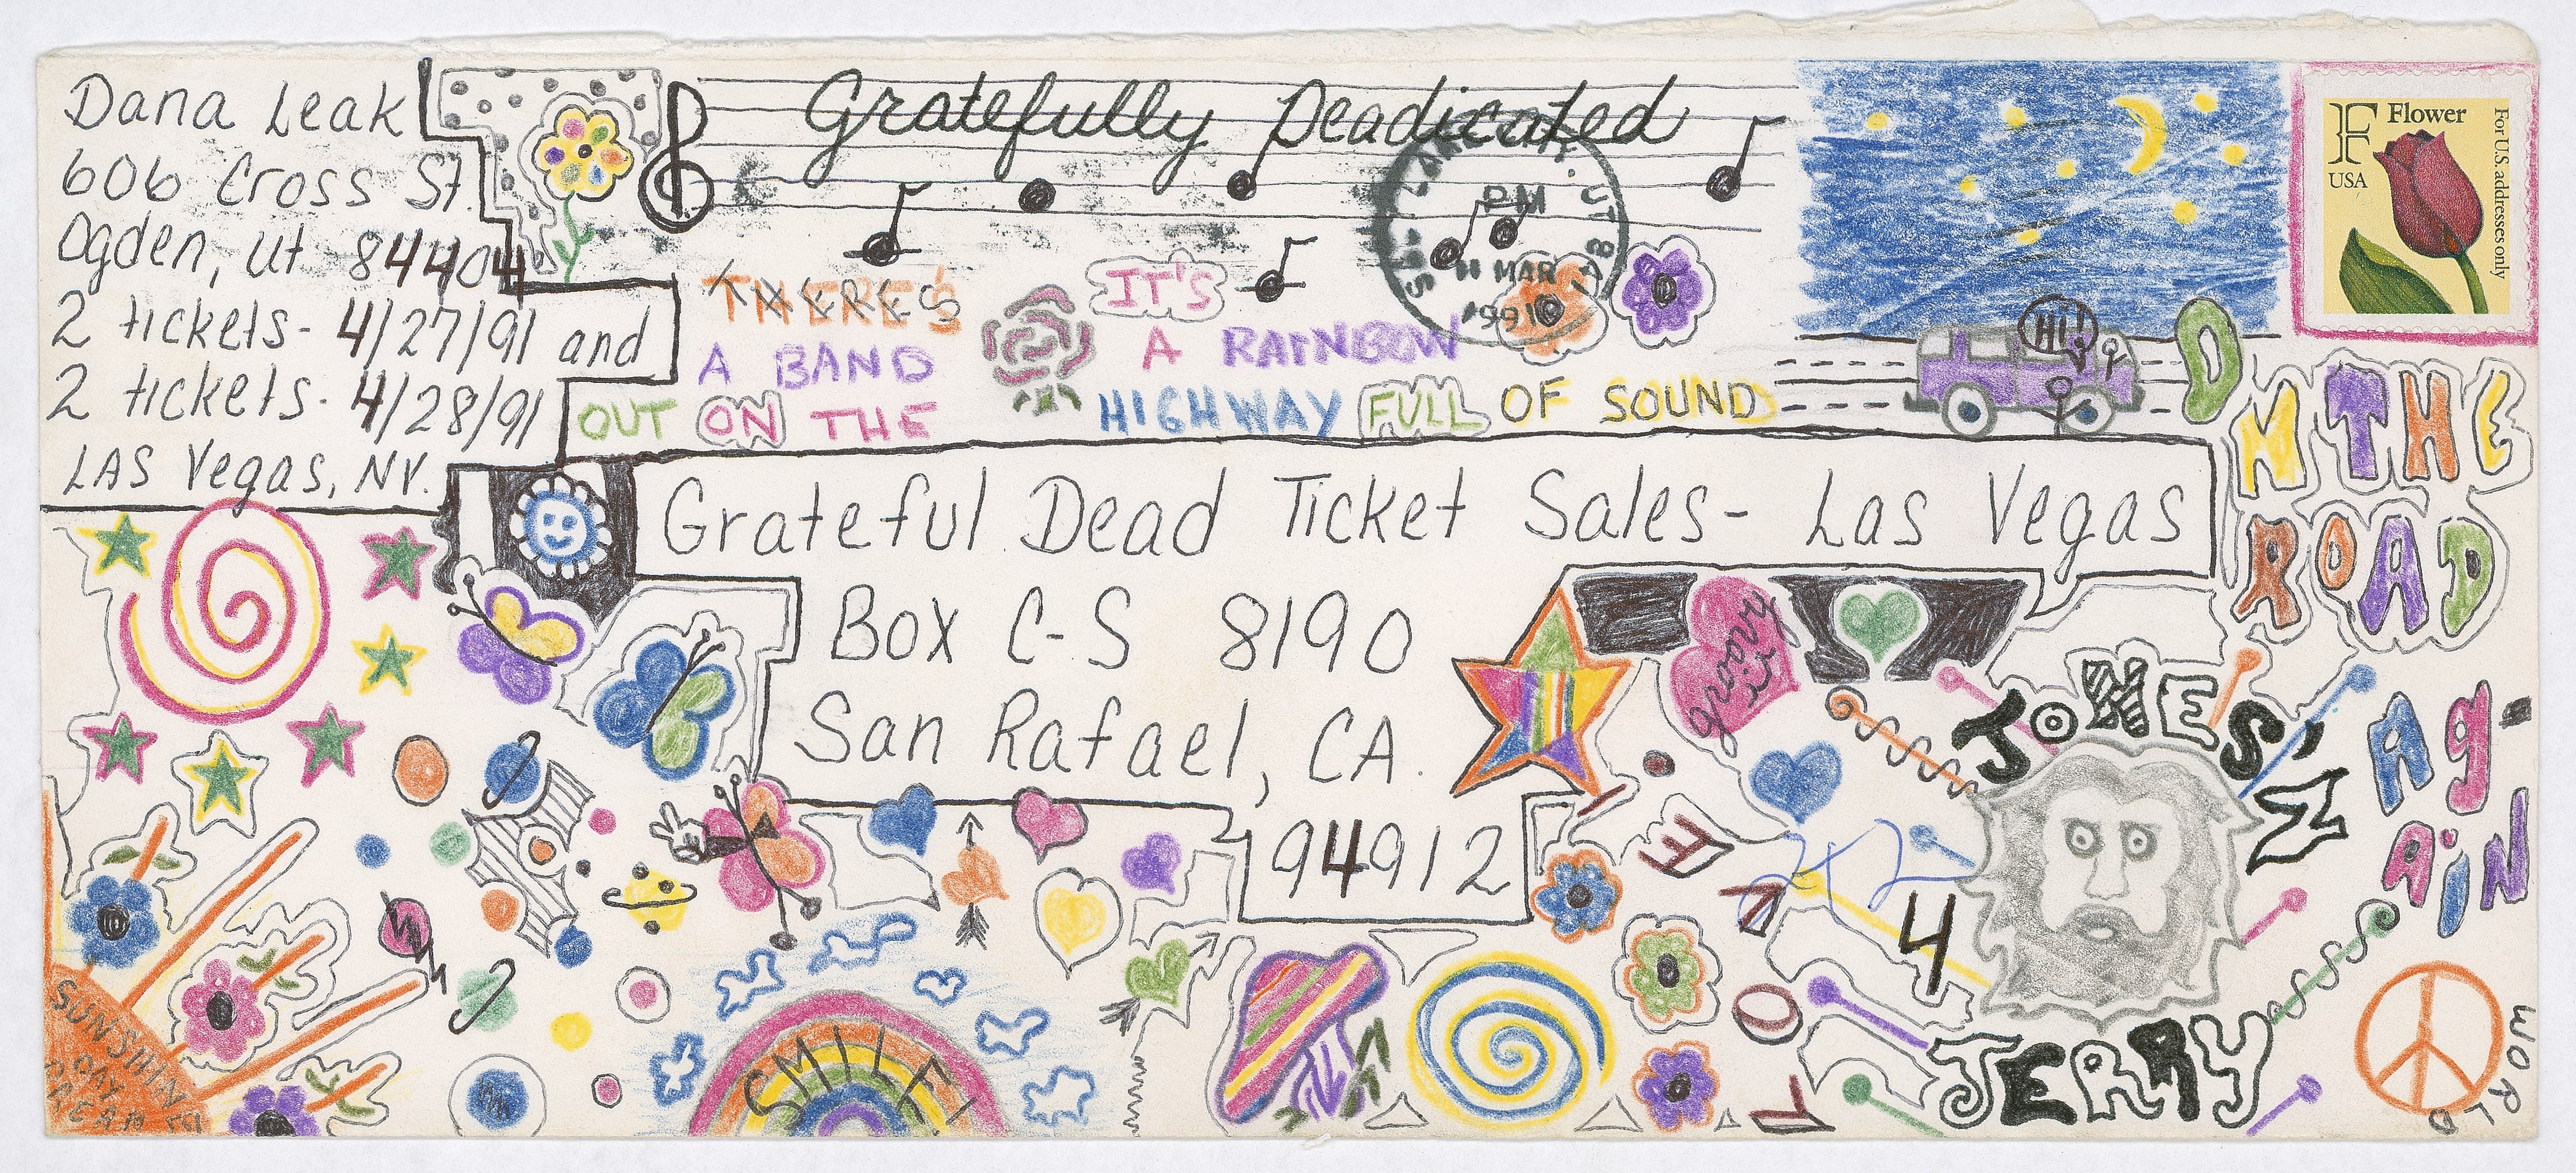 Dana Leak
606 Cross St.
Ogden, Ut 84404
2 tickets- 4/27/91 and
2 tickets- 4/28/91
LAS Vegas, NV.
Gratefully Deadicated
SALT LAKE UT
PM
11 MAR
1991
F Flower
USA
For U.S. addresses only
THERE'S
A BAND
OUT ON THE
IT'S
A RAINBOW
HIGHWAY FULL OF SOUND
HI!
ON THE
ROAD
Ag-
AiN
Grateful Dead Ticket Sales- Las Vegas
Box C-S 8190
San Rafael, CA.
94912
groovy
JONES'N
4
JERRY
LOVE
SUNSHINE
DAY
DREAM
SMILE!
WORLD